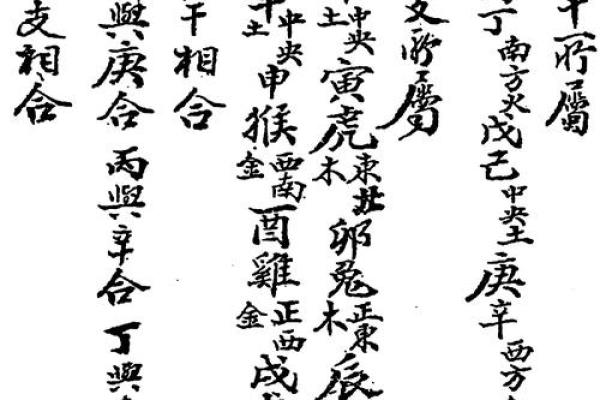 干所屬
丁南方火戊己中央土庚辛西方
支所屬
中央土寅虎東北木卯兔正東木辰
中央土申猴西南金酉雞正西金戌
干相合
與庚合丙與辛合丁與
支相合